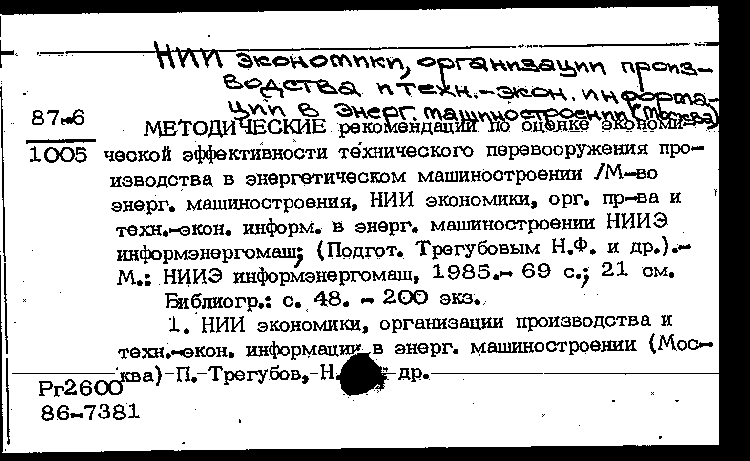 НИИ экономики, организации произ-
водства и техн.-экон. информа-
ции в энерг. машиностроении (Москва)
87-6
МЕТОДИЧЕСКИЕ рекомендации по оценке экономи-
1005 ческой эффективности технического перевооружения про-
изводства в энергетическом машиностроении /М-во
энерг. машиностроения, НИИ экономики, орг. пр-ва и
техн.-экон. информ. в энерг. машиностроении НИИЭ
информэнергомаш; (Подгот. Трегубовым Н.Ф. и др.).-
М.: НИИЭ информэнергомаш, 1985.- 69 с.; 21 см.
Библиогр.: с. 48. - 200 экз.
1. НИИ экономики, организации производства и
техн.-экон. информации в энерг. машиностроении (Мос-
ква) П. Трегубов, Н. др.
Рг2600
86-7381